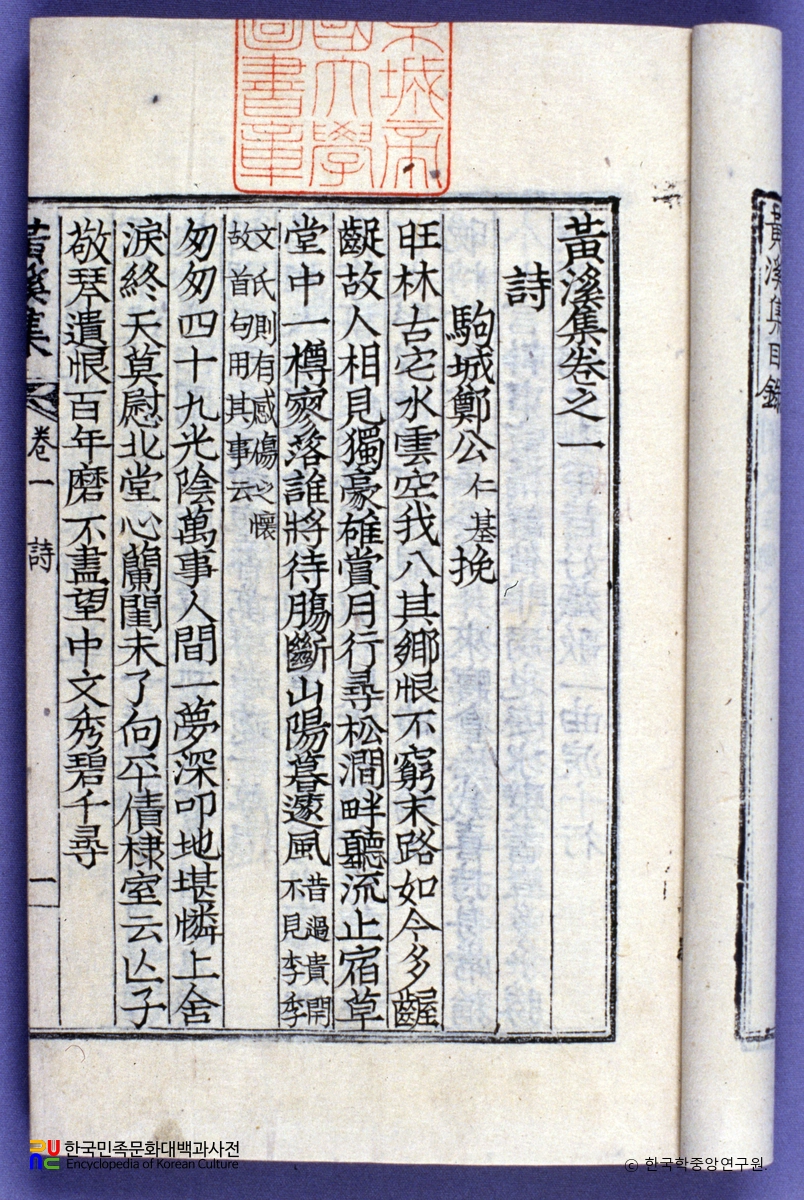 黃溪集目錄
京城帝
國大學
圖書章
黃溪集卷之一
詩
駒城鄭公仁基挽
旺林古宅水雲空我八其鄕恨不窮末路如今多齷
齪故人相見獨豪雄賞月行尋松澗畔聽流止宿草
堂中一樽寥落誰將待膓斷山陽暮邃風昔過貴閈
不見李季
文氏則有感傷之懷
故首句用其事云
匆匆四十九光陰萬事人間一夢深叩地堪憐上舍
淚終天莫慰北堂心蘭閨未了向平債棣室云亾子
敬琴遺恨百年磨不盡望中文秀碧千尋
黃溪集 卷一 詩 一
한국민족문화대백과사전
Encyclopedia of Korean Culture
ⓒ 한국학중앙연구원